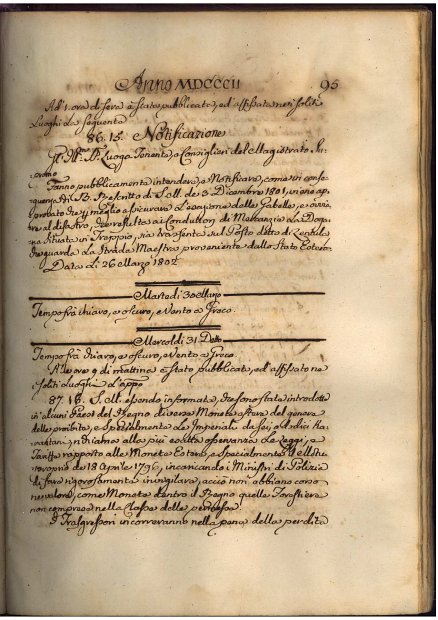 Anno MDCCCII 95
Ad 1. ora di sera è stata pubblicata, ed affissata nei soliti
Luoghi la seguente
86. 15. Notificazione
Luogo Tenente, e Consiglieri del Magistrato Su-
premo
Fanno pubblicamente intendere, e Notificare, come in conse-
quenza di B. Rescritto di S. M. de 3 Dicembre 1801, viene ap-
probato per meglio assicurare l'esazione delle Gabelle, e ovvia-
re al disastro, che risulta ai Conduttori di Mercanzie La Doga-
na situata in Treppio, sia trasferita sul Posto detto di Lentula
che guarda La Strada Maestra proveniente dallo Stato Estero.
Data Li 26 Marzo 1802
Martedì 30 Marzo
Tempo frà chiaro, e oscuro, e Vento a Greco.
Mercoldì 31 Detto
Tempo frà chiaro, e oscuro, e Vento a Greco.
Alle ore 9 di mattina è stato pubblicato, ed affissato ne
soliti Luoghi
87. 16. S. M. essendo informata, che sono state introdotte
in alcuni Paesi del Regno diverse Monete estere del genere
delle proibite, e specialmente Le Imperiali da sei, e dodici Ka-
rantani, richiama alla più esatta osservanza Le Leggi, e
Tariffe rapporto alle Monete Estere, e specialmente
del 18 Aprile 1796, incaricando i Ministri di Polizia
di fare rigorosamente invigilare, acciò non abbiano corso
ne valore, come Monete dentro il Regno quelle Forestiere
non comprese nella Classe delle permesse.
I Trasgressori incorreranno nella pena della perdita